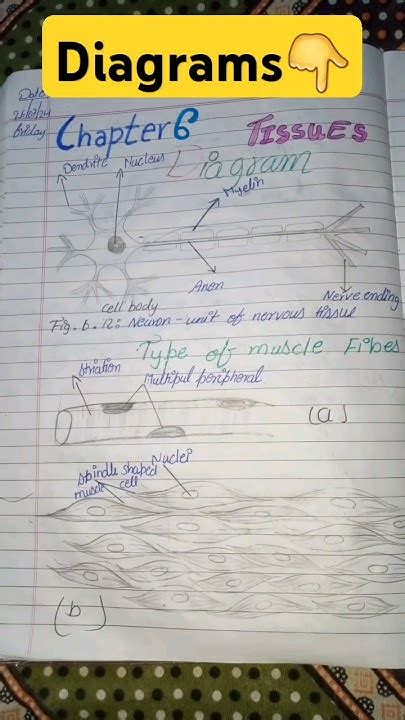 Diagrams👇
Date
26/07/24
Friday
Chapter 6 TISSUES
Diagram
Dendrite Nucleus
Myelin
Axon
Nerve ending
cell body
Fig. 6.12: Neuron - unit of nervous tissue
Type of muscle Fibes
Striation
Multipul peripheral
(a)
Nuclei
Spindle shaped
muscle cell
(b)